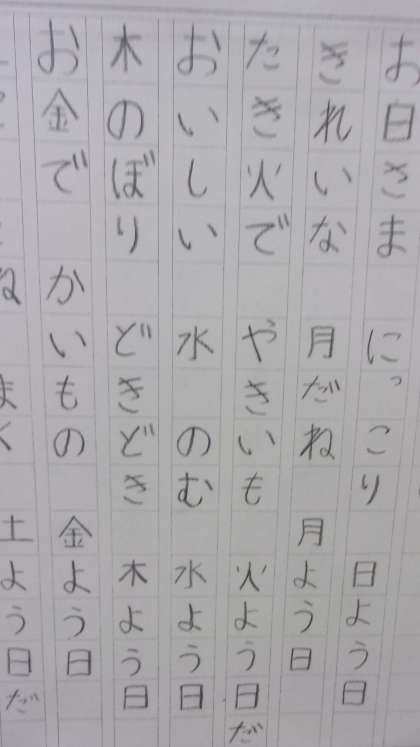 お日さま にっこり 日よう日
きれいな 月だね 月よう日
たき火で やきいも 火よう日だ
おいしい 水のむ 水よう日
木のぼり どきどき 木よう日
お金で かいもの 金よう日
土よう日だ